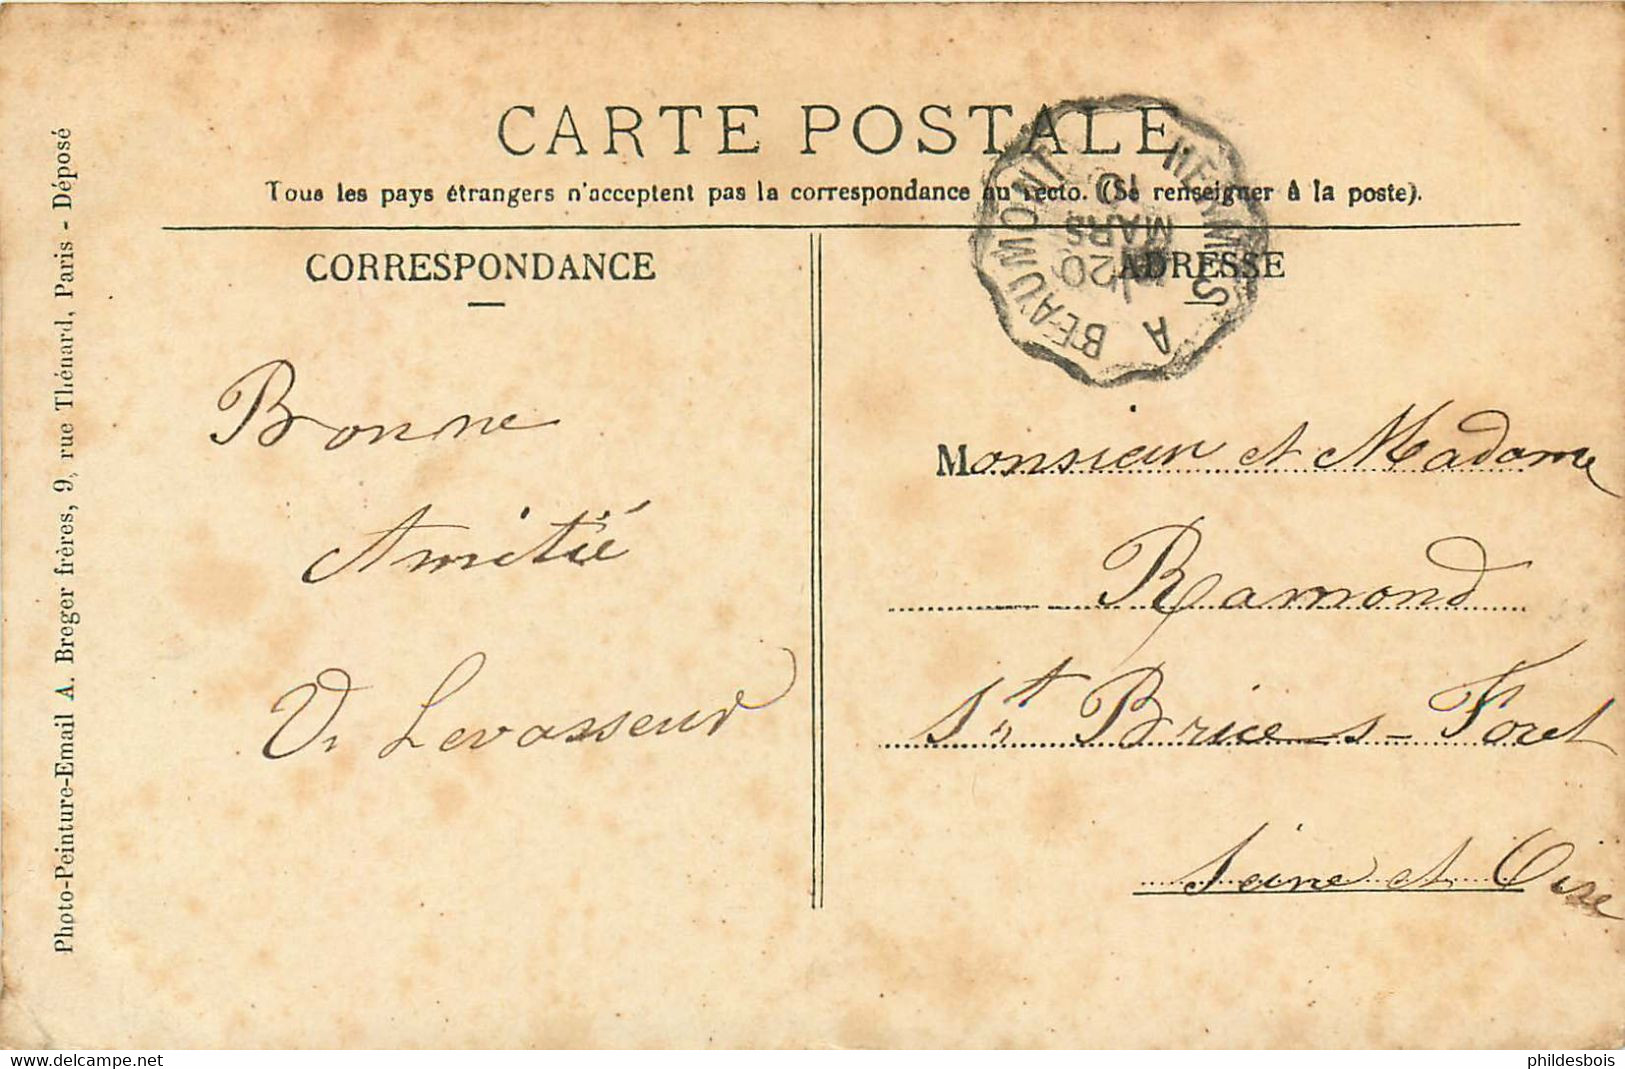 CARTE POSTALE.
Tous les pays étrangers n'acceptent pas la correspondance au recto. (Se renseigner à la poste).
CORRESPONDANCE
ADRESSE
A BEAUMONT
20
MARS
10
Bonne
Amitié
V. Levasseur
Monsieur et Madame
Ramond
St Brice s- Foret
Seine et Oise
Photo-Peinture-Email A. Breger frères, 9, rue Thénard, Paris - Déposé
www.delcampe.net
phildesbois